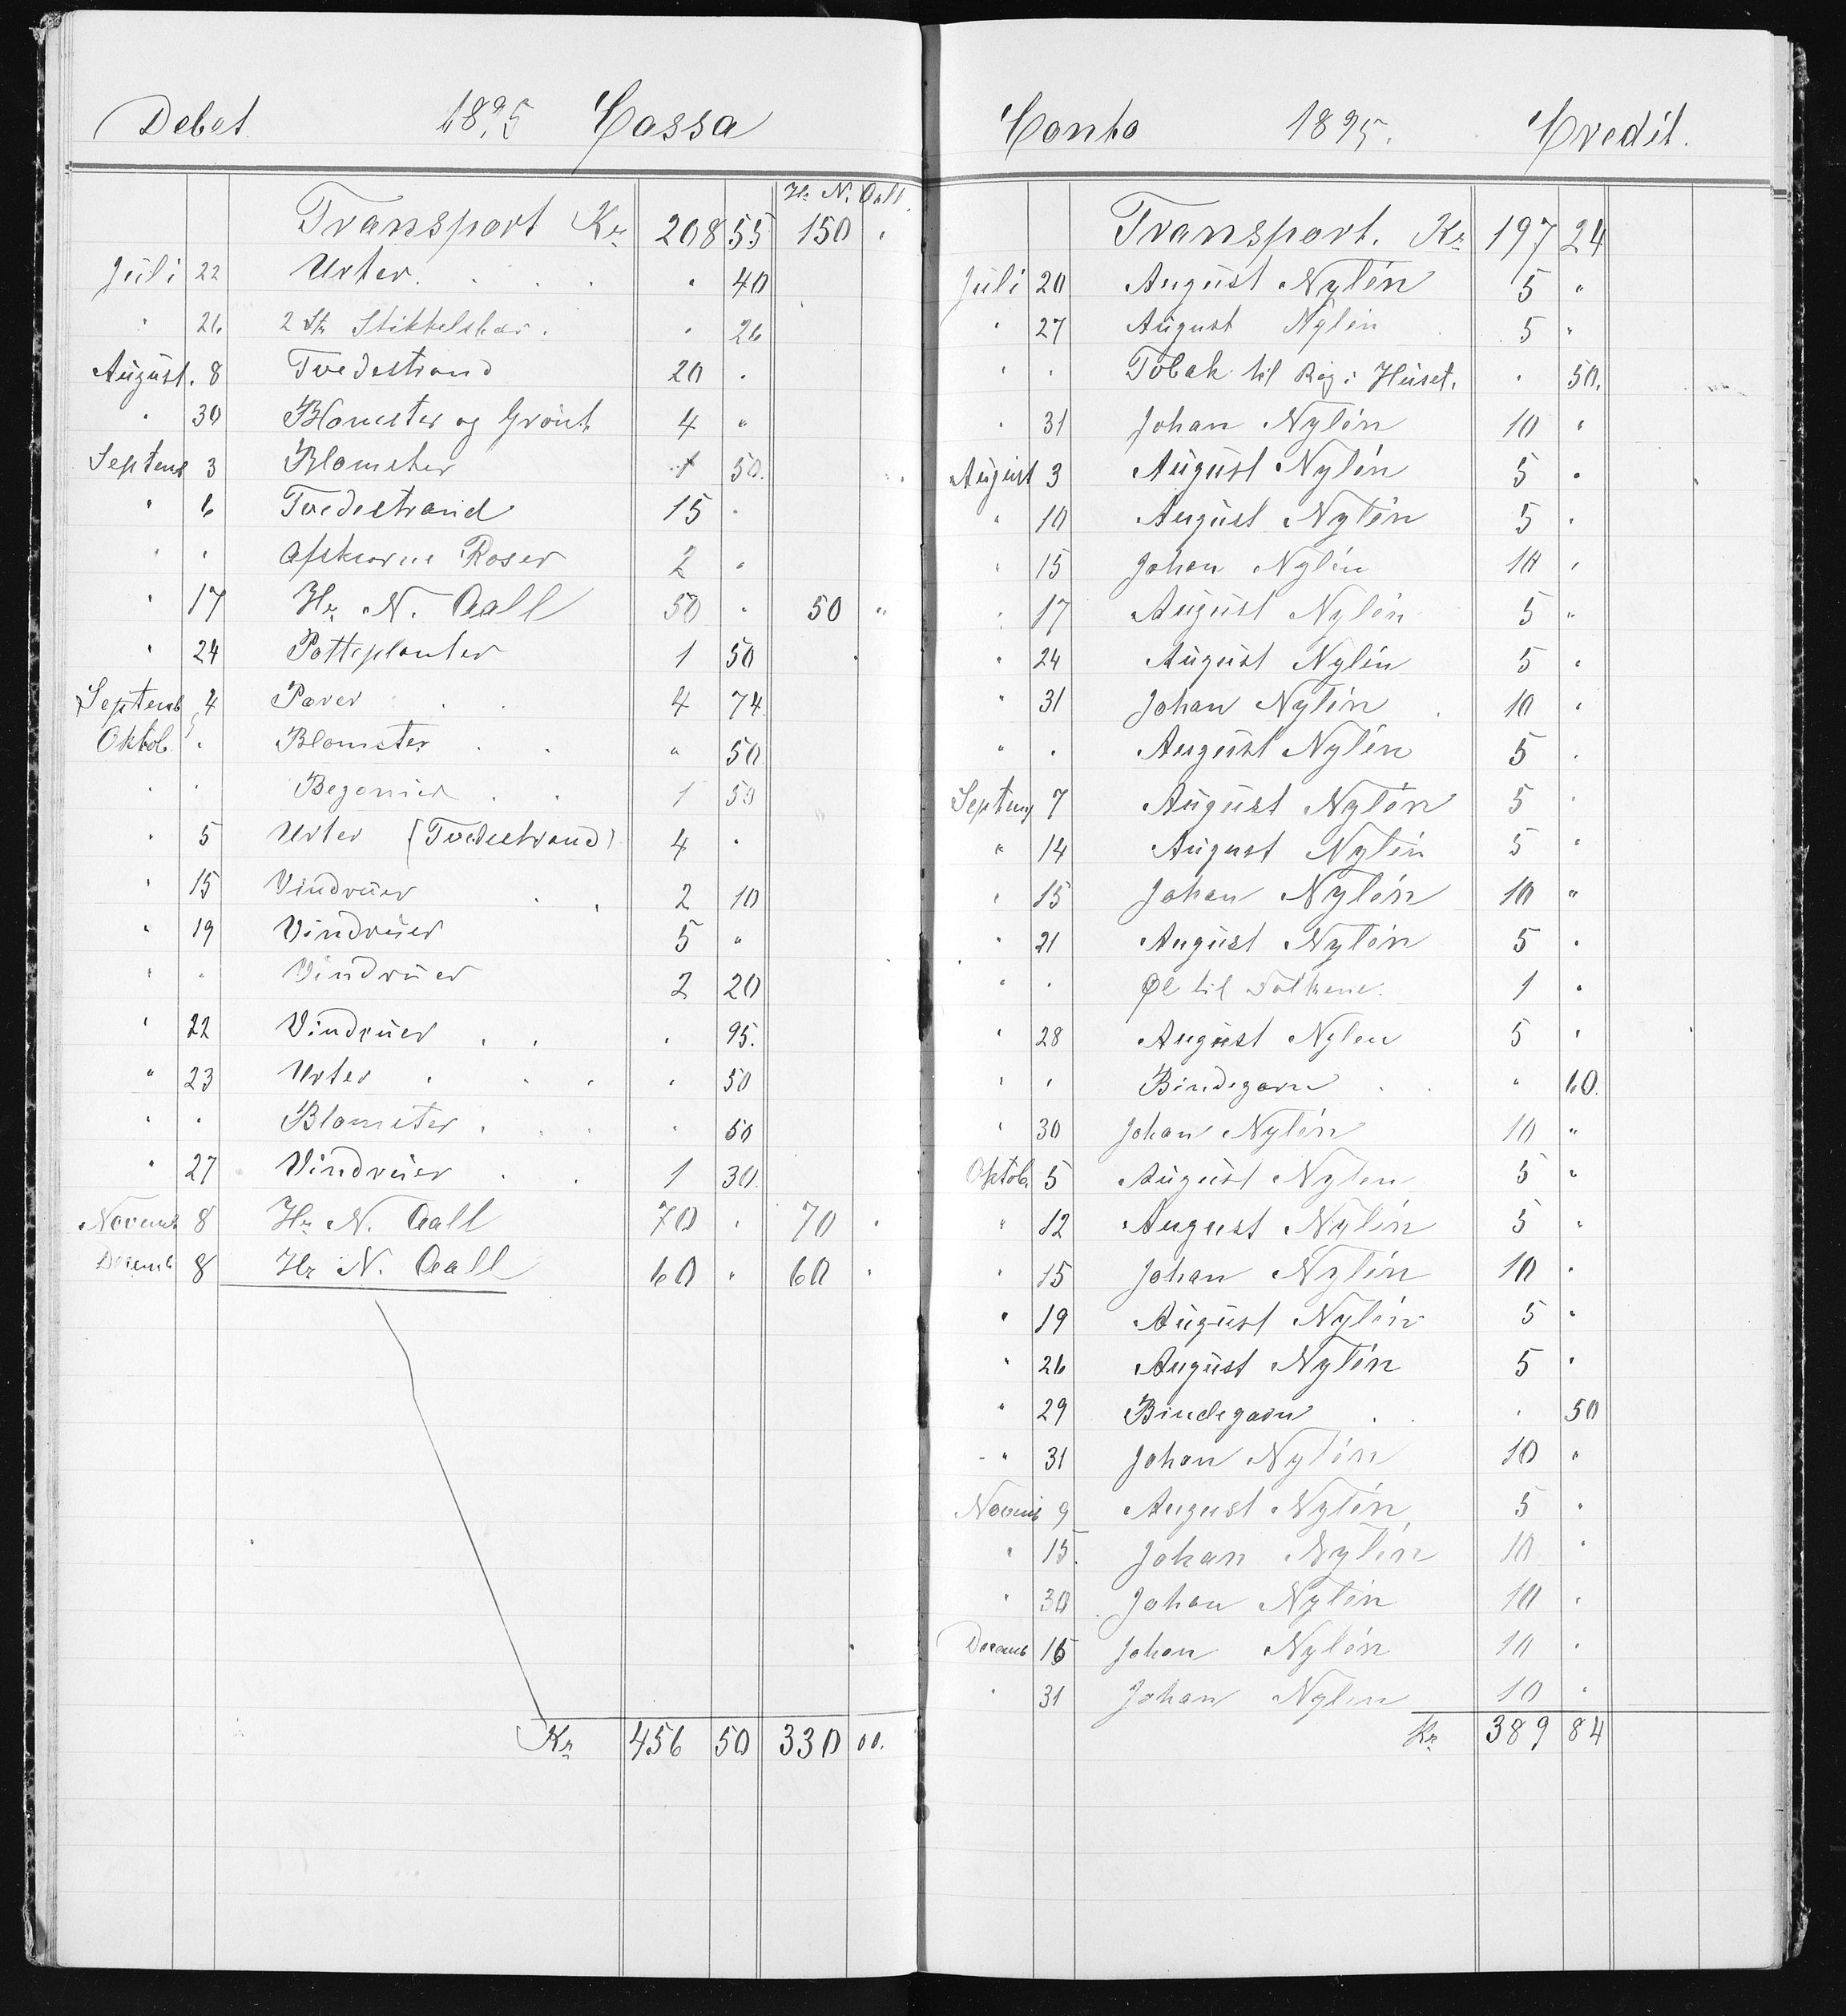 Debet 1895 Cassa
Hr N. Aall.
Transport Kr 208 55 150 "
Juli 22 Urter . . . . " 40
" 26 2 Str Stikkelsbær . " 26
August. 8 Tvedestrand 20 "
" 30 Blomster og Grönt 4 "
Septemb 3 Blomster 1 50.
" 6 Tvedestrand 15 "
" " Afskorne Roser 2 "
" 17 Hr N. Aall 50 " 50 "
" 24 Potteplanter 1 50
Septemb 4 Pærer . . 4 74
Oktob. " Blomster . . " 50
" " Begonier . . 1 50
" 5 Urter (Tvedestrand) 4 "
" 15 Vindrüer . . 2 10
" 19 Vindrüer 5 "
" " Vindrüer 2 20
" 22 Vindrüer . . " 95.
" 23 Urter . . . " 50
" " Blomster . . . " 50
" 27 Vindrüer . . 1 30.
Novemb 8 Hr N. Aall 70 " 70 "
Decemb 8 Hr N. Aall 60 " 60 "
Kr 456 50 330 00.
Conto 1895. Credit.
Transport. Kr 197 24
Juli 20 August Nylén 5 "
" 27 August Nylén 5 "
" " Tobak til Røg i Hüset. " 50.
" 31 Johan Nylén 10 "
August 3 August Nylén 5 "
" 10 August Nylén 5 "
" 15 Johan Nylén 10 "
" 17 August Nylén 5 "
" 24 August Nylén 5 "
" 31 Johan Nylén . 10 "
" " August Nylén 5 "
Septemb 7 August Nylén 5 "
" 14 August Nylén 5 "
" 15 Johan Nylén 10 "
" 21 August Nylén 5 "
" " Øl til Folkene. 1 "
" 28 August Nylen 5 "
" " Bindegarn . . " 60.
" 30 Johan Nylén 10 "
Oktob. 5 August Nylen 5 "
" 12 August Nylén 5 "
" 15 Johan Nylén 10 "
" 19 August Nylén 5 "
" 26 August Nylén 5 "
" 29 Bindegarn . . " 50
" 31 Johan Nylén 10 "
Novemb 9 August Nylén 5 "
" 15. Johan Nylén 10 "
" 30 Johan Nylén 10 "
Decemb 15 Johan Nylén 10 "
" 31 Johan Nylen 10 "
Kr 389 84